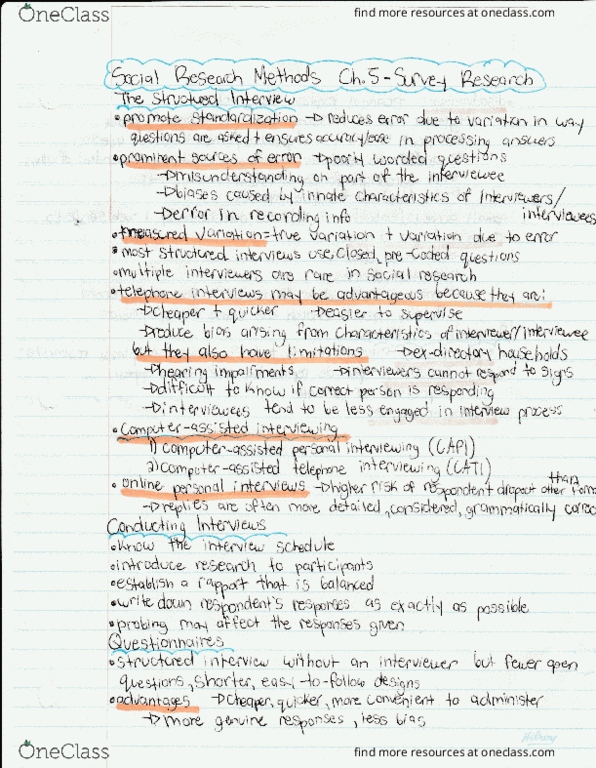 OneClass
find more resources at oneclass.com
Social Research Methods Ch.5-Survey Research
The Structured Interview
•promote standardization → reduces error due to variation in way
questions are asked + ensures accuracy/ease in processing answers
•prominent sources of error → poorly worded questions
→misunderstanding on part of the interviewee
→biases caused by innate characteristics of interviewers/
interviewees
→error in recording info
•measured variation=true variation + variation due to error
•most structured interviews use closed, pre-coded questions
•multiple interviewers are rare in social research
•telephone interviews may be advantageous because they are:
→cheaper + quicker →easier to supervise
→reduce bias arising from characteristics of interviewer/interviewee
but they also have limitations →ex-directory households
→hearing impairments →interviewers cannot respond to signs
→difficult to know if correct person is responding
→interviewees tend to be less engaged in interview process
•computer-assisted interviewing
1) computer-assisted personal interviewing (CAPI)
2) computer-assisted telephone interviewing (CATI)
•online personal interviews →higher risk of respondent dropout than other
→replies are often more detailed, considered, grammatically
Conducting Interviews
•know the interview schedule
•introduce research to participants
•establish a rapport that is balanced
•write down respondent's responses as exactly as possible
•probing may affect the responses given
Questionnaires
•structured interview without an interviewer but fewer open
questions, shorter, easy-to-follow designs
•advantages →cheaper, quicker, more convenient to administer
→more genuine responses, less bias
Hilroy
OneClass
find more resources at oneclass.com